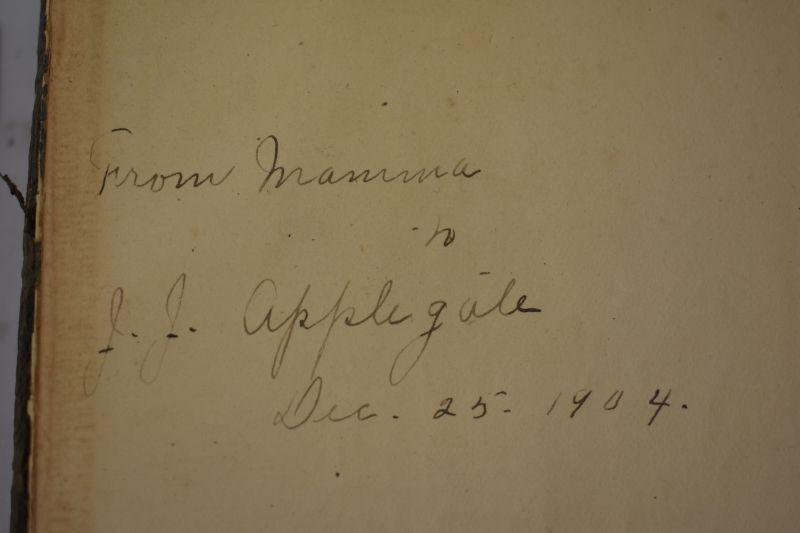 From Mamma
to
J. J. Applegate
Dec. 25. 1904.